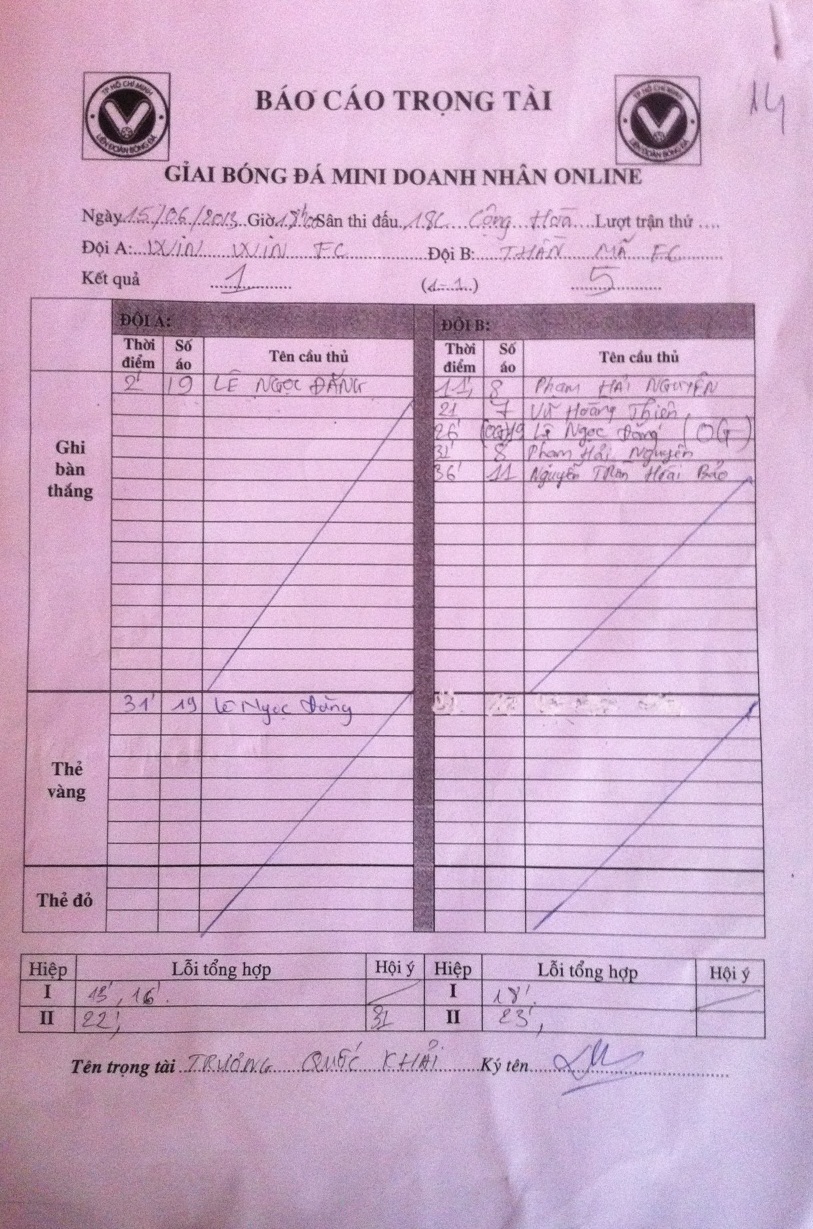 14
TP HỒ CHÍ MINH
LIÊN ĐOÀN BÓNG ĐÁ
BÁO CÁO TRỌNG TÀI
TP HỒ CHÍ MINH
LIÊN ĐOÀN BÓNG ĐÁ
GIẢI BÓNG ĐÁ MINI DOANH NHÂN ONLINE
Ngày 15/06/2013 Giờ Sân thi đấu 18C Cộng Hoà Lượt trận thứ ....
Đội A: WIN WIN FC Đội B: THẦN MÃ FC
Kết quả 1 (1-1) 5
ĐỘI A: ĐỘI B:
Thời điểm Số áo Tên cầu thủ Thời điểm Số áo Tên cầu thủ
Ghi bàn thắng
2' 19 LÊ NGỌC ĐĂNG 11' 8 Phạm HẢI NGUYÊN
21 7 Vũ Hoàng Thiên
26' (OG) 19 Lê Ngọc Đăng (OG)
31' 8 Phạm Hải Nguyên
36' 11 Nguyễn Trần Hoài Bảo
Thẻ vàng
31' 19 Lê Ngọc Đăng
Thẻ đỏ
Hiệp Lỗi tổng hợp Hội ý Hiệp Lỗi tổng hợp Hội ý
I 13', 16'. I 18'.
II 22', 31 II 23',
Tên trọng tài TRƯƠNG QUỐC KHẢI Ký tên